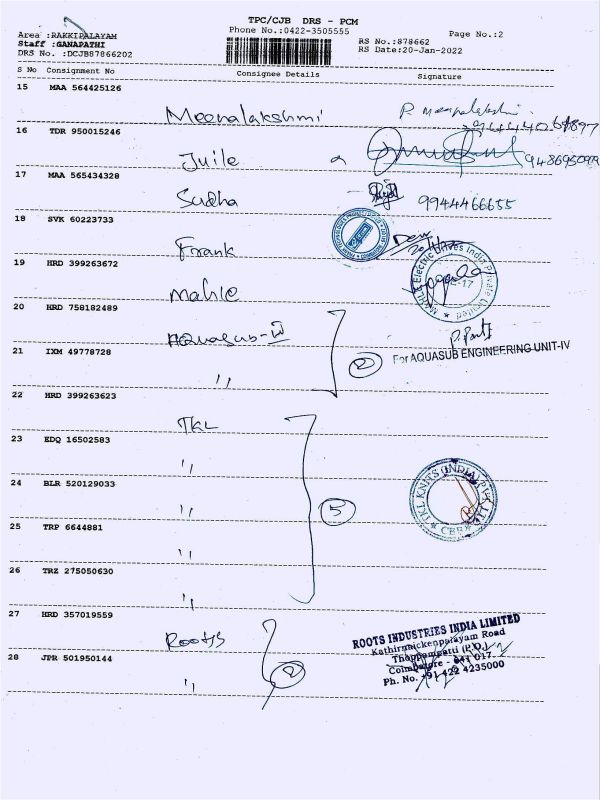 TPC/CJB DRS - PCM
Phone No.:0422-3505555
Page No.:2
Area :RAKKIPALAYAM
Staff :GANAPATHI
DRS No. :DCJB87866202
RS No.:878662
RS Date:20-Jan-2022
S No Consignment No Consignee Details Signature
15 MAA 564425126 Meenalakshmi
16 TDR 950015246 Juile
17 MAA 565434328 Sudha 9944466655
18 SVK 60223733 Frank
19 HRD 399263672 Mahle
MAHLE Electric Drives India Private Limited
20 HRD 758182489 Aquasub-IV
21 IXM 49778728 ,, 2
For AQUASUB ENGINEERING UNIT-IV
22 HRD 399263623 TKL
23 EDQ 16502583 ,,
24 BLR 520129033 ,, 5
TKL KNITS (INDIA) PVT LTD
CBE
25 TRP 6644881 ,,
26 TRZ 275050630 ,,
27 HRD 357019559 Roots
28 JPR 501950144 ,, 2
ROOTS INDUSTRIES INDIA LIMITED
Kathirnaickenpalayam Road
Thoppampatti (P.O.)
Coimbatore - 641 017
Ph. No. +91 422 4235000